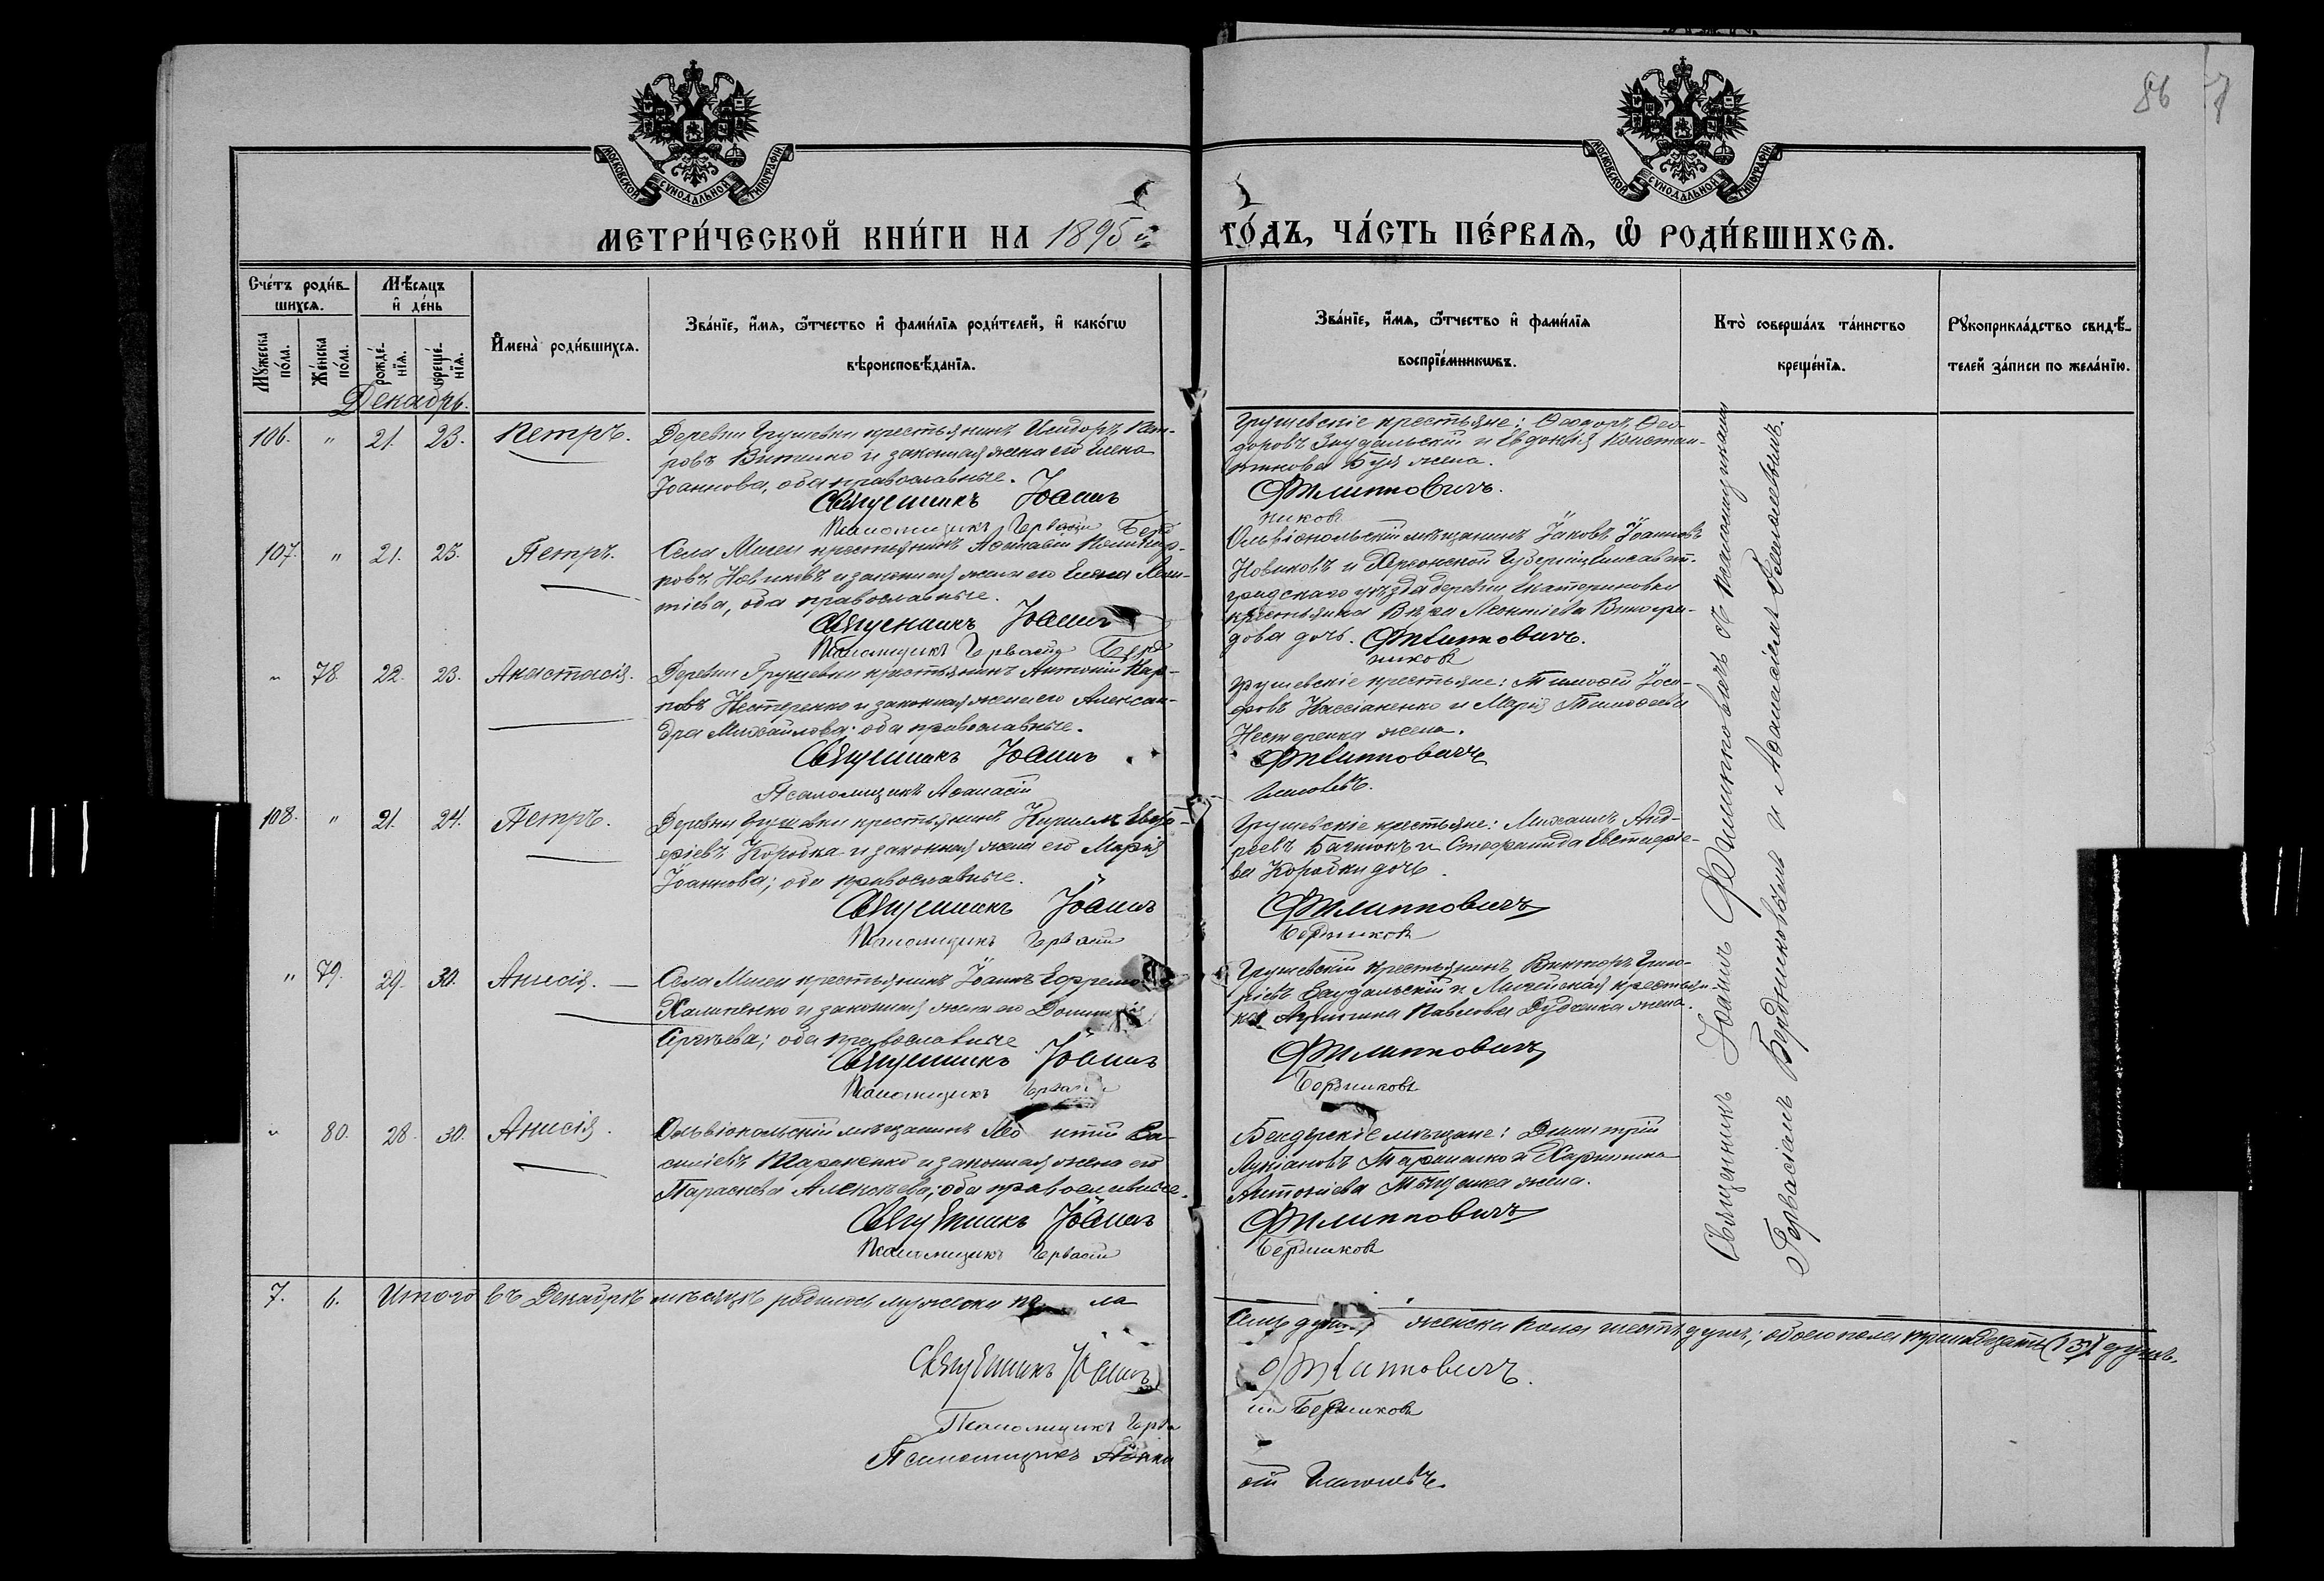 86
МОСКОВСКОЙ СѴНОДАЛЬНОЙ ТИПОГРАФІИ
МОСКОВСКОЙ СѴНОДАЛЬНОЙ ТИПОГРАФІИ
МЕТРИ́ЧЕСКОЙ КНИ́ГИ НА 1895 й ГО́ДЪ, ЧА́СТЬ ПЕ́РВАѦ, Ѽ РОДИ́ВШИХСѦ.
Сче́тъ роди́в-
шихсѧ.
Мѣ́сѧцъ
и҆ де́нь
Мꙋ́жеска
по́ла.
Же́нска
по́ла.
рожде́-
нїѧ.
креще́-
нїѧ.
И҆мена̀ роди́вшихсѧ.
Зва́нїе, и҆́мѧ, ѻ҆́тчество и҆ фами́лїѧ роди́телей, и҆ како́гѡ
вѣроисповѣ́данїѧ.
Зва́нїе, и҆́мѧ, ѻ҆́тчество и҆ фами́лїѧ
воспрїе́мникѡвъ.
Кто̀ соверша́лъ та́инство
креще́нїѧ.
Рꙋкоприкла́дство свидѣ́-
телей за́писи по жела́нїю.
Декабрь.
106. " 21. 23. Петръ.
Деревни Грушевки крестьянинъ Исидоръ
ровъ и законная жена его Елена
Іоаннова, оба православные.
Священникъ Іоаннъ
Псаломщикъ Гервасій Берд
Грушевскіе крестьяне: Ѳеодоръ Ѳео-
доровъ Заудальскій и Евдокія Констан-
тинова жена.
Филипповичъ.
никовъ
107. " 21. 25. Петръ.
Села Мигеи крестьянинъ
ковъ Новиковъ и законная жена его Елена Леон-
тіева, оба православные.
Священникъ Іоаннъ
Псаломщикъ Гервасій Берд
Ольвіопольскій мѣщанинъ Іаковъ Іоанновъ
Новиковъ и Херсонской Губерніи Елисавет-
градскаго уѣзда деревни Екатериновки
крестьянка Вѣра Леонтіева Виногра-
дова дочь. Филипповичъ.
никовъ
" 78. 22. 23. Анастасія.
Деревни Грушевки крестьянинъ Антоній Кар-
повъ Нестеренко и законная жена его Алексан-
дра Михайлова; оба православные.
Священникъ Іоаннъ
Псаломщикъ Аѳанасій
Грушевскіе крестьяне: Тимоѳей Іоси-
фовъ Кассіаненко и Марія Тимоѳеева
Нестеренка жена.
Филипповичъ
108. " 21. 24. Петръ.
Деревни Грушевки крестьянинъ Кириллъ
еріевъ Коробка и законная жена его Марія
Іоаннова; оба православные.
Священникъ Іоаннъ
Псаломщикъ Гервасій
Грушевскіе крестьяне: Михаилъ Анд-
реевъ и Стефанида
ва Коробки дочь.
Филипповичъ
Бердниковъ
" 79. 29. 30. Анисія.
Села Мигеи крестьянинъ Іоаннъ Ефремо
Калиненко и законная жена его
Сергѣева; оба православные
Священникъ Іоаннъ
Псаломщикъ Гервасій
Грушевскій крестьянинъ Викторъ Григо-
ріевъ Заудальскій и Мигейская крестьян-
ка Павлова Дудченка жена.
Филипповичъ
Бердниковъ
" 80. 28. 30. Анисія.
Ольвіопольскій мѣщанинъ Лео нтій Ва-
силіевъ и законная жена его
Параскева Алексѣева; оба православные.
Священникъ Іоаннъ
Псаломщикъ Гервасій
Бендерскіе мѣщане: Димитрій
Лукіановъ и Харитина
Антоніева жена.
Филипповичъ
Бердниковъ
Священникъ Іоаннъ Филипповичъ съ псаломщиками
Гервасіемъ Бердниковымъ и Аѳанасіемъ
7. 6. Итого въ Декабрѣ мѣсяцѣ родилось мужска по ла
семь душъ, женска пола шесть душъ; обоего пола тринадцать (13) душъ.
Священникъ Іоаннъ Филипповичъ.
Псаломщикъ Герва сій Бердниковъ
Псаломщикъ Аѳана сій